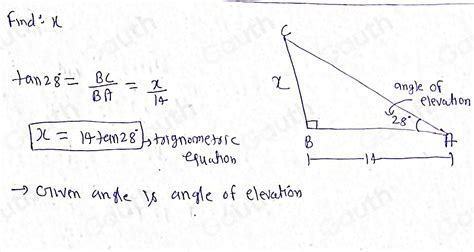 Find: x
tan28° = BC/BA = x/14
x = 14tan28° → trignometric
equation
→ Given angle is angle of elevation
C
x
angle of
elevation
28°
B
A
14